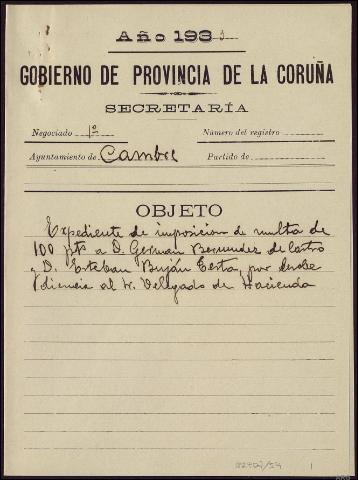 Año 193
GOBIERNO DE PROVINCIA DE LA CORUÑA
SECRETARÍA
Negociado 1º Número del registro
Ayuntamiento de Cambre Partido de
OBJETO
Expediente de imposicion de multa de
100 pts a D. German Bermudez de Castro
y D. Esteban Buján Certa, por desobe
diencia al Sr. Delegado de Hacienda
1